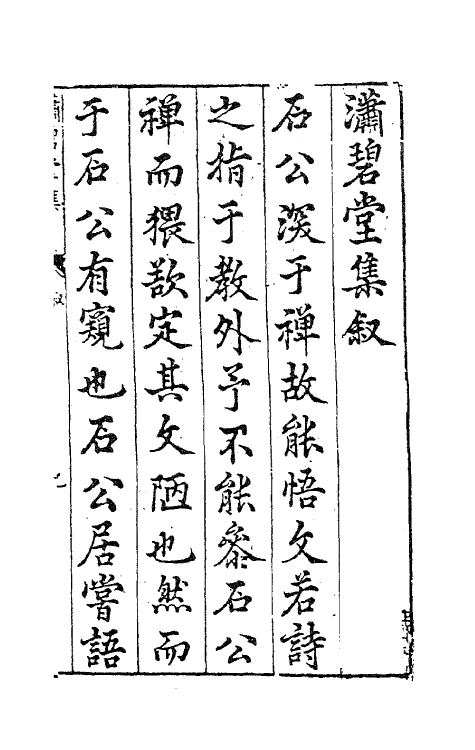 瀟碧堂集叙
石公深于禅故能悟文若詩
之指于教外予不能叅石公
禅而猥欵定其文陋也然而
于石公有窺也石公居嘗語